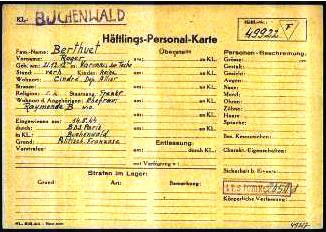 KL.: BUCHENWALD
Häftl.-Nr.: 49922 F
Häftlings-Personal-Karte
Fam.-Name: Berthuet
Vorname: Roger
Geb. am: 21.12. in
Stand: verh. Kinder: keine
Wohnort: Cindré, Dep. Allier
Strasse:
Religion: r.k. Staatsang.: Franz.
Wohnort d. Angehörigen: Ehefrau:
Raymonde B. w.o.
Eingewiesen am: 14.5.44
durch: BdS Paris
in KL.: Buchenwald
Grund: Politisch-Franzose
Vorstrafen:
Überstellt
am: an KL.
am: an KL.
am: an KL.
am: an KL.
am: an KL.
am: an KL.
Entlassung:
am: durch KL.:
mit Verfügung v.:
Personen-Beschreibung:
Grösse:
Gestalt:
Gesicht:
Augen:
Nase:
Mund:
Ohren:
Zähne:
Haare:
Sprache:
Bes. Kennzeichen:
Charakt.-Eigenschaften:
Sicherheit b. Einsatz:
Körperliche Verfassung:
Strafen im Lager:
Grund: Art: Bemerkung: